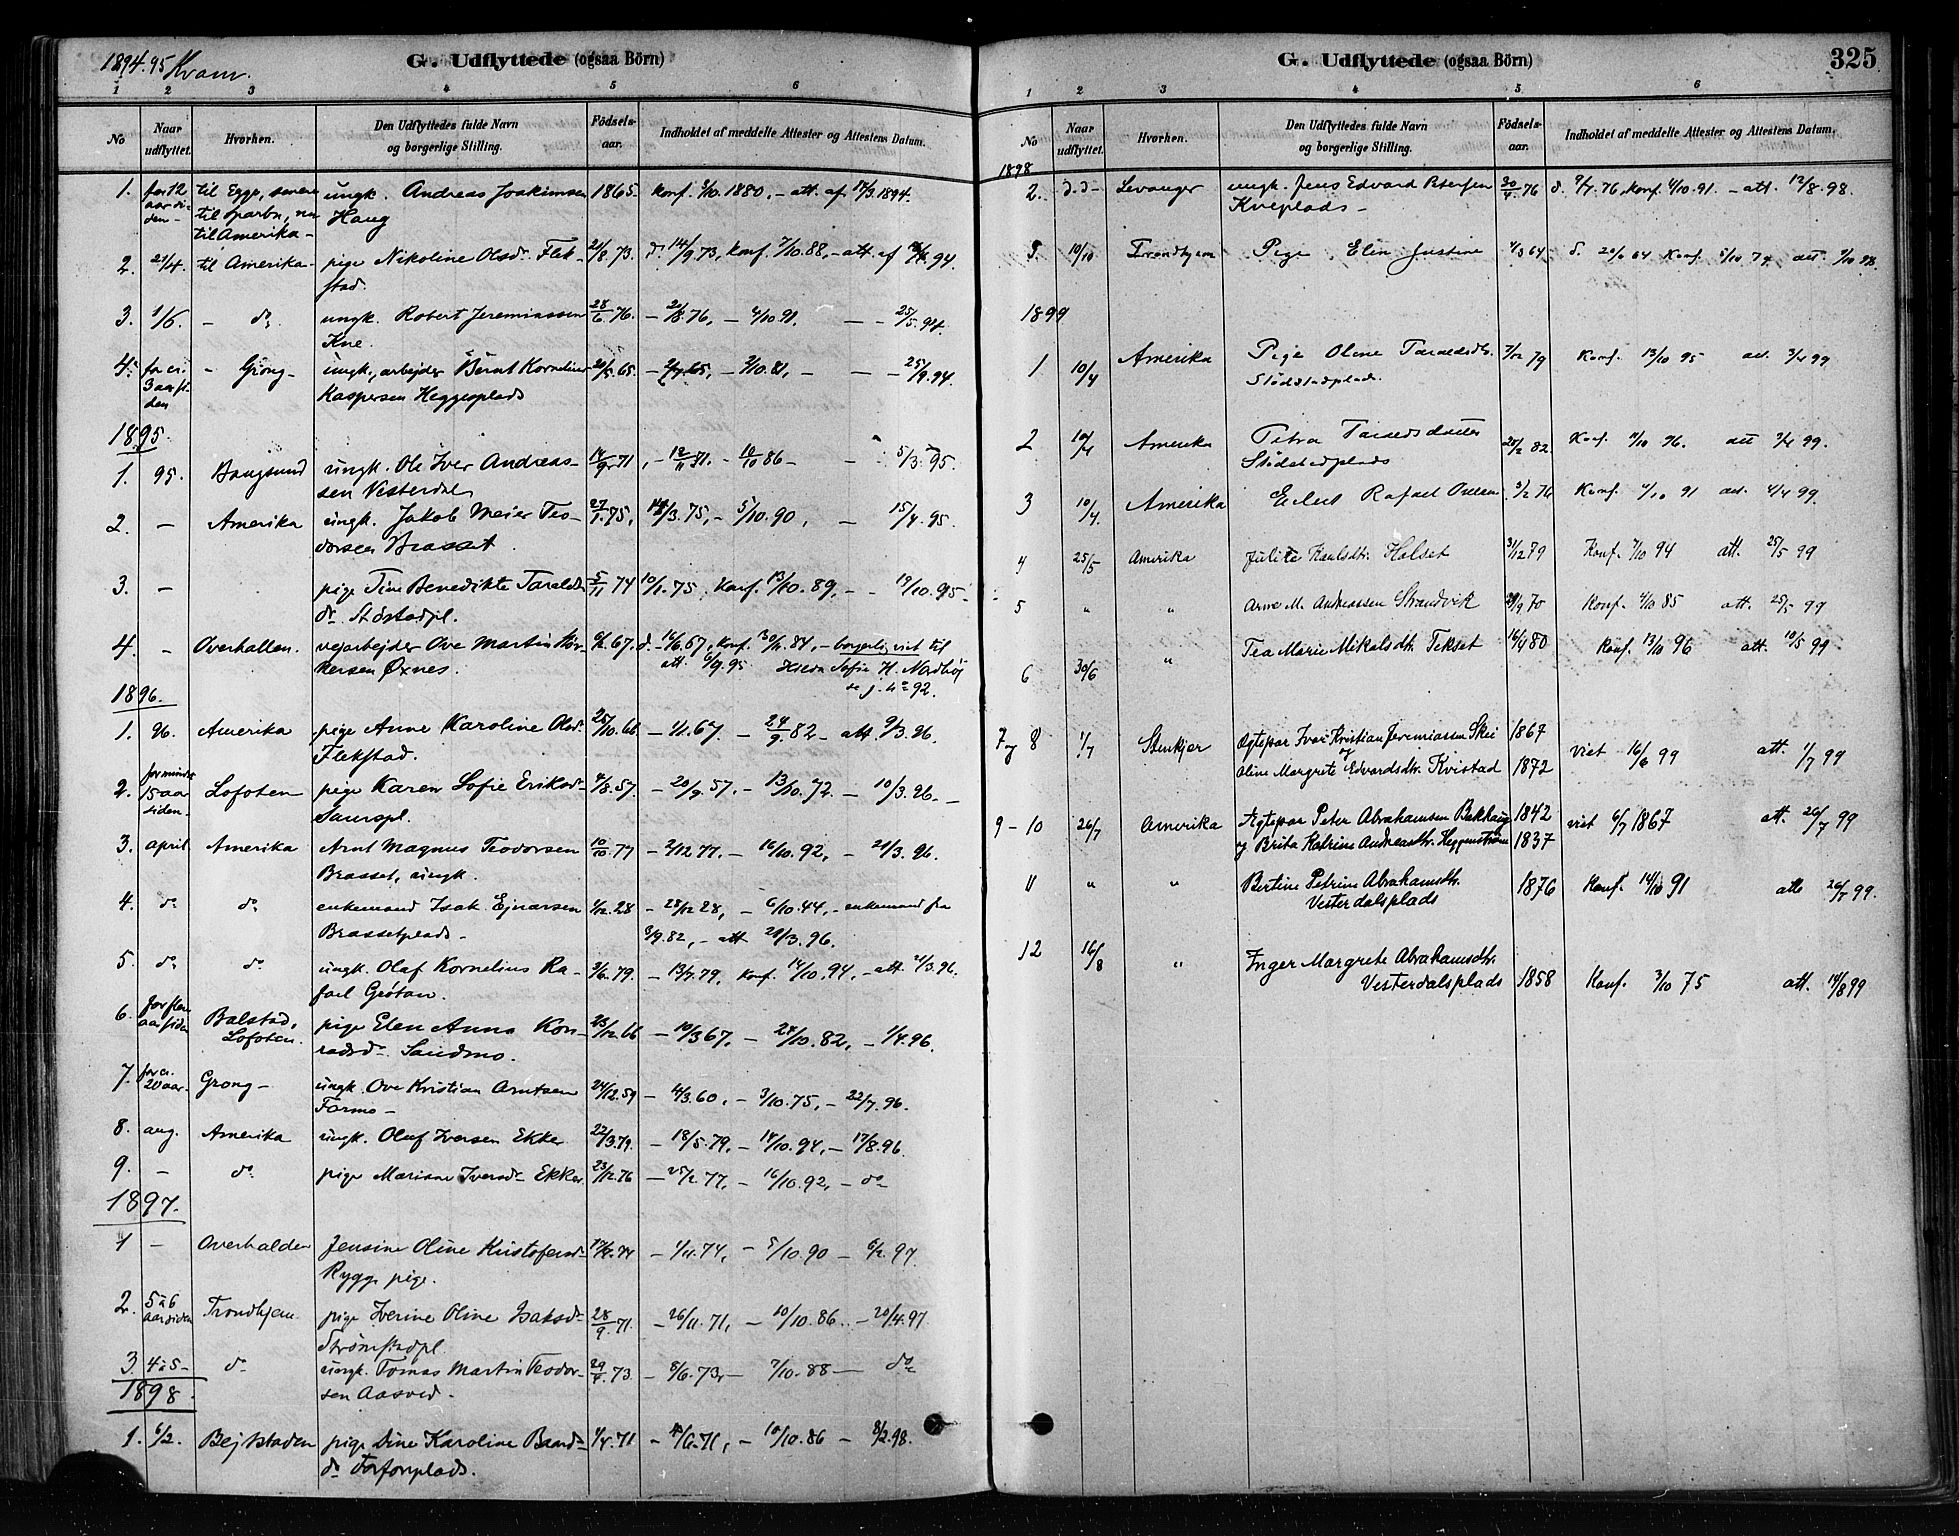 1894.95 Kvam.
G. Udflyttede (ogsaa Börn)
1 2 3 4 5 6
No
Naar udflyttet.
Hvorhen.
Den Udflyttedes fulde Navn og borgerlige Stilling.
Födsels-aar.
Indholdet af meddelte Attester og Attestens Datum.
1. for 12 til Egge, senere ungk. Andreas Joakimsen 1865. konf. 3/10.1880, - att. af 1894.
aar si- til Sparbu, nu Haug
den- til Amerika-
2. 21/4. til Amerika- pige Nikoline Olsd. Flek- 21/8.73. d. 14/9.73, konf. 7/10.88, - att. af 94.
stad.
3. 1/6. - do. ungk. Robert Jeremiassen 28/6.76. - 76, - 4/10.91. - - 25/5.94.
Kne.
4. for ci. - Grong- ungk., arbejder Bernt Kornelius 65. - 65, - 2/10.81, - - 25/9.94.
3 aar si- Kaspersen Heggesplads
den
1895.
1. 95. Bangsund ungk. Ole Iver Andreas- 14/9.71, - 12/11.71. - 10/10 86 - - 5/3.95.
sen Vesterdal
2. - Amerika ungk. Jakob Meier Teo- 27/1.75, 3.75, - 5/10.90, - 15/4.95.
dorsen Brasset.
3. - pige Tine Benedikte Taralds- 5/11 74 10/1.75, Konf. 13/10.89, - - 19/10.95-
dr. Stöstadpl.
4. - Overhallen. vejarbejder Ove Martin 67. d. 67, konf. 84, - borgerlig viet til
kersen Øxnes. att. 6/9.95 Sofie H. Nordhøj
92.
1896.
1. 96. Amerika pige Anne Karoline Olsd. 25/10.66 - 1/1.67. - 24/9.82 - att. 9/3.96.
Flekstad.
2. for mindst Lofoten pige Karen Sofie Eriksd- 4/8.57. - 20/9.57. - 13/10.72. - 10/3.96. -
15 aar siden. pl.
3. april Amerika Arnt Magnus Teodorsen 10/10.77 - 2/12.77. - 16/10.92, - 21/3.96.
Brasset, ungk.
4. do do. enkemand Isak Ejnarsen 1/12.28 - 28/12 28, - 6/10.44, - enkemand fra
Brassetplads- 3/9.82, - att. 21/3.96.
5. do. do. ungk. Olaf Kornelius Ra- 3/6.79. - 13/7.79, konf. 14/10.94, - att. 21/3.96.
fael Grötan.
6. for flere Balstad, pige Elen Anna Kon- 23/12.66 - 10/3 67, - 24/10.82, - 1/4.96.
aar siden Lofoten. radsd. Sandmo.
7. for ci. Grong- ungk. Ove Kristian Arntsen 24/12.59 - 4/3.60, - 3/10.75, - 22/7.96.
20 aar- Formo-
8. aug. Amerika ungk. Oluf Iversen Ekker 22/3.79. - 18/5.79, - 14/10.94, - 17/8.96.
9. - do. pige Mariane Iversd- Ekker 23/12.76 - 25/2.77, - 16/10.92, - do
1897.
1 - Overhalden Jensine Oline Kristofersd- 74 - 1/11.74, - 5/10.90 - 6/2.97.
Rygg, pige.
2. 5 à 6 Trondhjem. pige Iverine Oline Isaksd- 28/9.71. - 26/11.71, - 10/10.86.. - 20/4.97.
aar siden Strömstadpl.
3 4 à 5- do ungk. Tomas Martin Teodor- 29/4.73. - 8/6.73, - 7/10.88 - do
sen Aasved.
1898.
1. 6/2. Bejtstaden pige Dine Karoline Bernt- 4.71 - 6.71, - 10/10.86 - 8/2.98.
dr. plads.
G. Udflyttede (ogsaa Börn)
325
1 2 3 4 5 6
No
Naar udflyttet.
Hvorhen.
Den Udflyttedes fulde Navn og borgerlige Stilling.
Födsels-aar.
Indholdet af meddelte Attester og Attestens Datum.
1898
2. d.d- Levanger ungk. Jens Edvard Petersen 20/4.76 d. 9/7.76, konf. 4/10.91. - att. 12/8.98.
Kneplads-
3. 10/10 Trondhjem Pige Elen Justine 64. d. 64 Konf. 5/10 79. att 98.
1899
1 10/4 Amerika Pige Oline Taraldsdtr. 7/12 79 Konf. 13/10 95 att. 3/4 99.
Stödstadplads.
2 10/4 Amerika Petra Taraldsdatter 20/2 82. Konf. 11/10 96. att 3/4 99.
Stödstadplads
3 10/4. Amerika Eilert Rafael Olsen 3/2 76 Konf. 4/10 91 att. 4/4 99.
4 25/5 Amerika Julie Paulsdtr. Holset 31/12 79 Konf. 7/10 94 att. 25/5 99
5 " " Arne M. Andreassen Strandvik 29/9 70 Konf. 4/10 85 att. 25/5 99
6 30/6 " Tea Marie Mikalsdtr. Tekset 16/9 80 Konf. 13/10 96 att. 10/5 99
7 og 8 1/7 Stenkjer Ægtepar Ivar Kristian Jeremiassen Skei 1867 viet 16/6 99 att. 1/7 99
og Oline Margrete Edvardsdtr. Kvistad 1872
9-10 26/7 Amerika Ægtepar Peter Abrahamsen Bakhaug 1842 viet 6/7 1867 att. 26/7 99
og Brita Katrine Andreasdtr. Heggenström 1837
11 " " Bertine Petrine Abrahamsdtr. 1876 Konf. 14/10 91 att. 26/7 99.
Vesterdalsplads
12 16/8 " Inger Margrete Abrahamsdtr.
Vesterdalsplads 1858 Konf. 3/10 75 att. 14/8 99